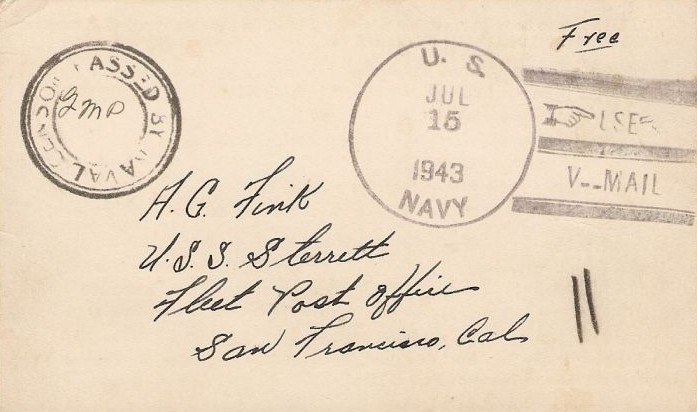 Free
PASSED BY NAVAL CENSOR
U. S.
JUL
15
1943
NAVY
USE
V--MAIL
A. G. Fink
U.S.S. Sterrett
Fleet Post Office
San Francisco, Cal.